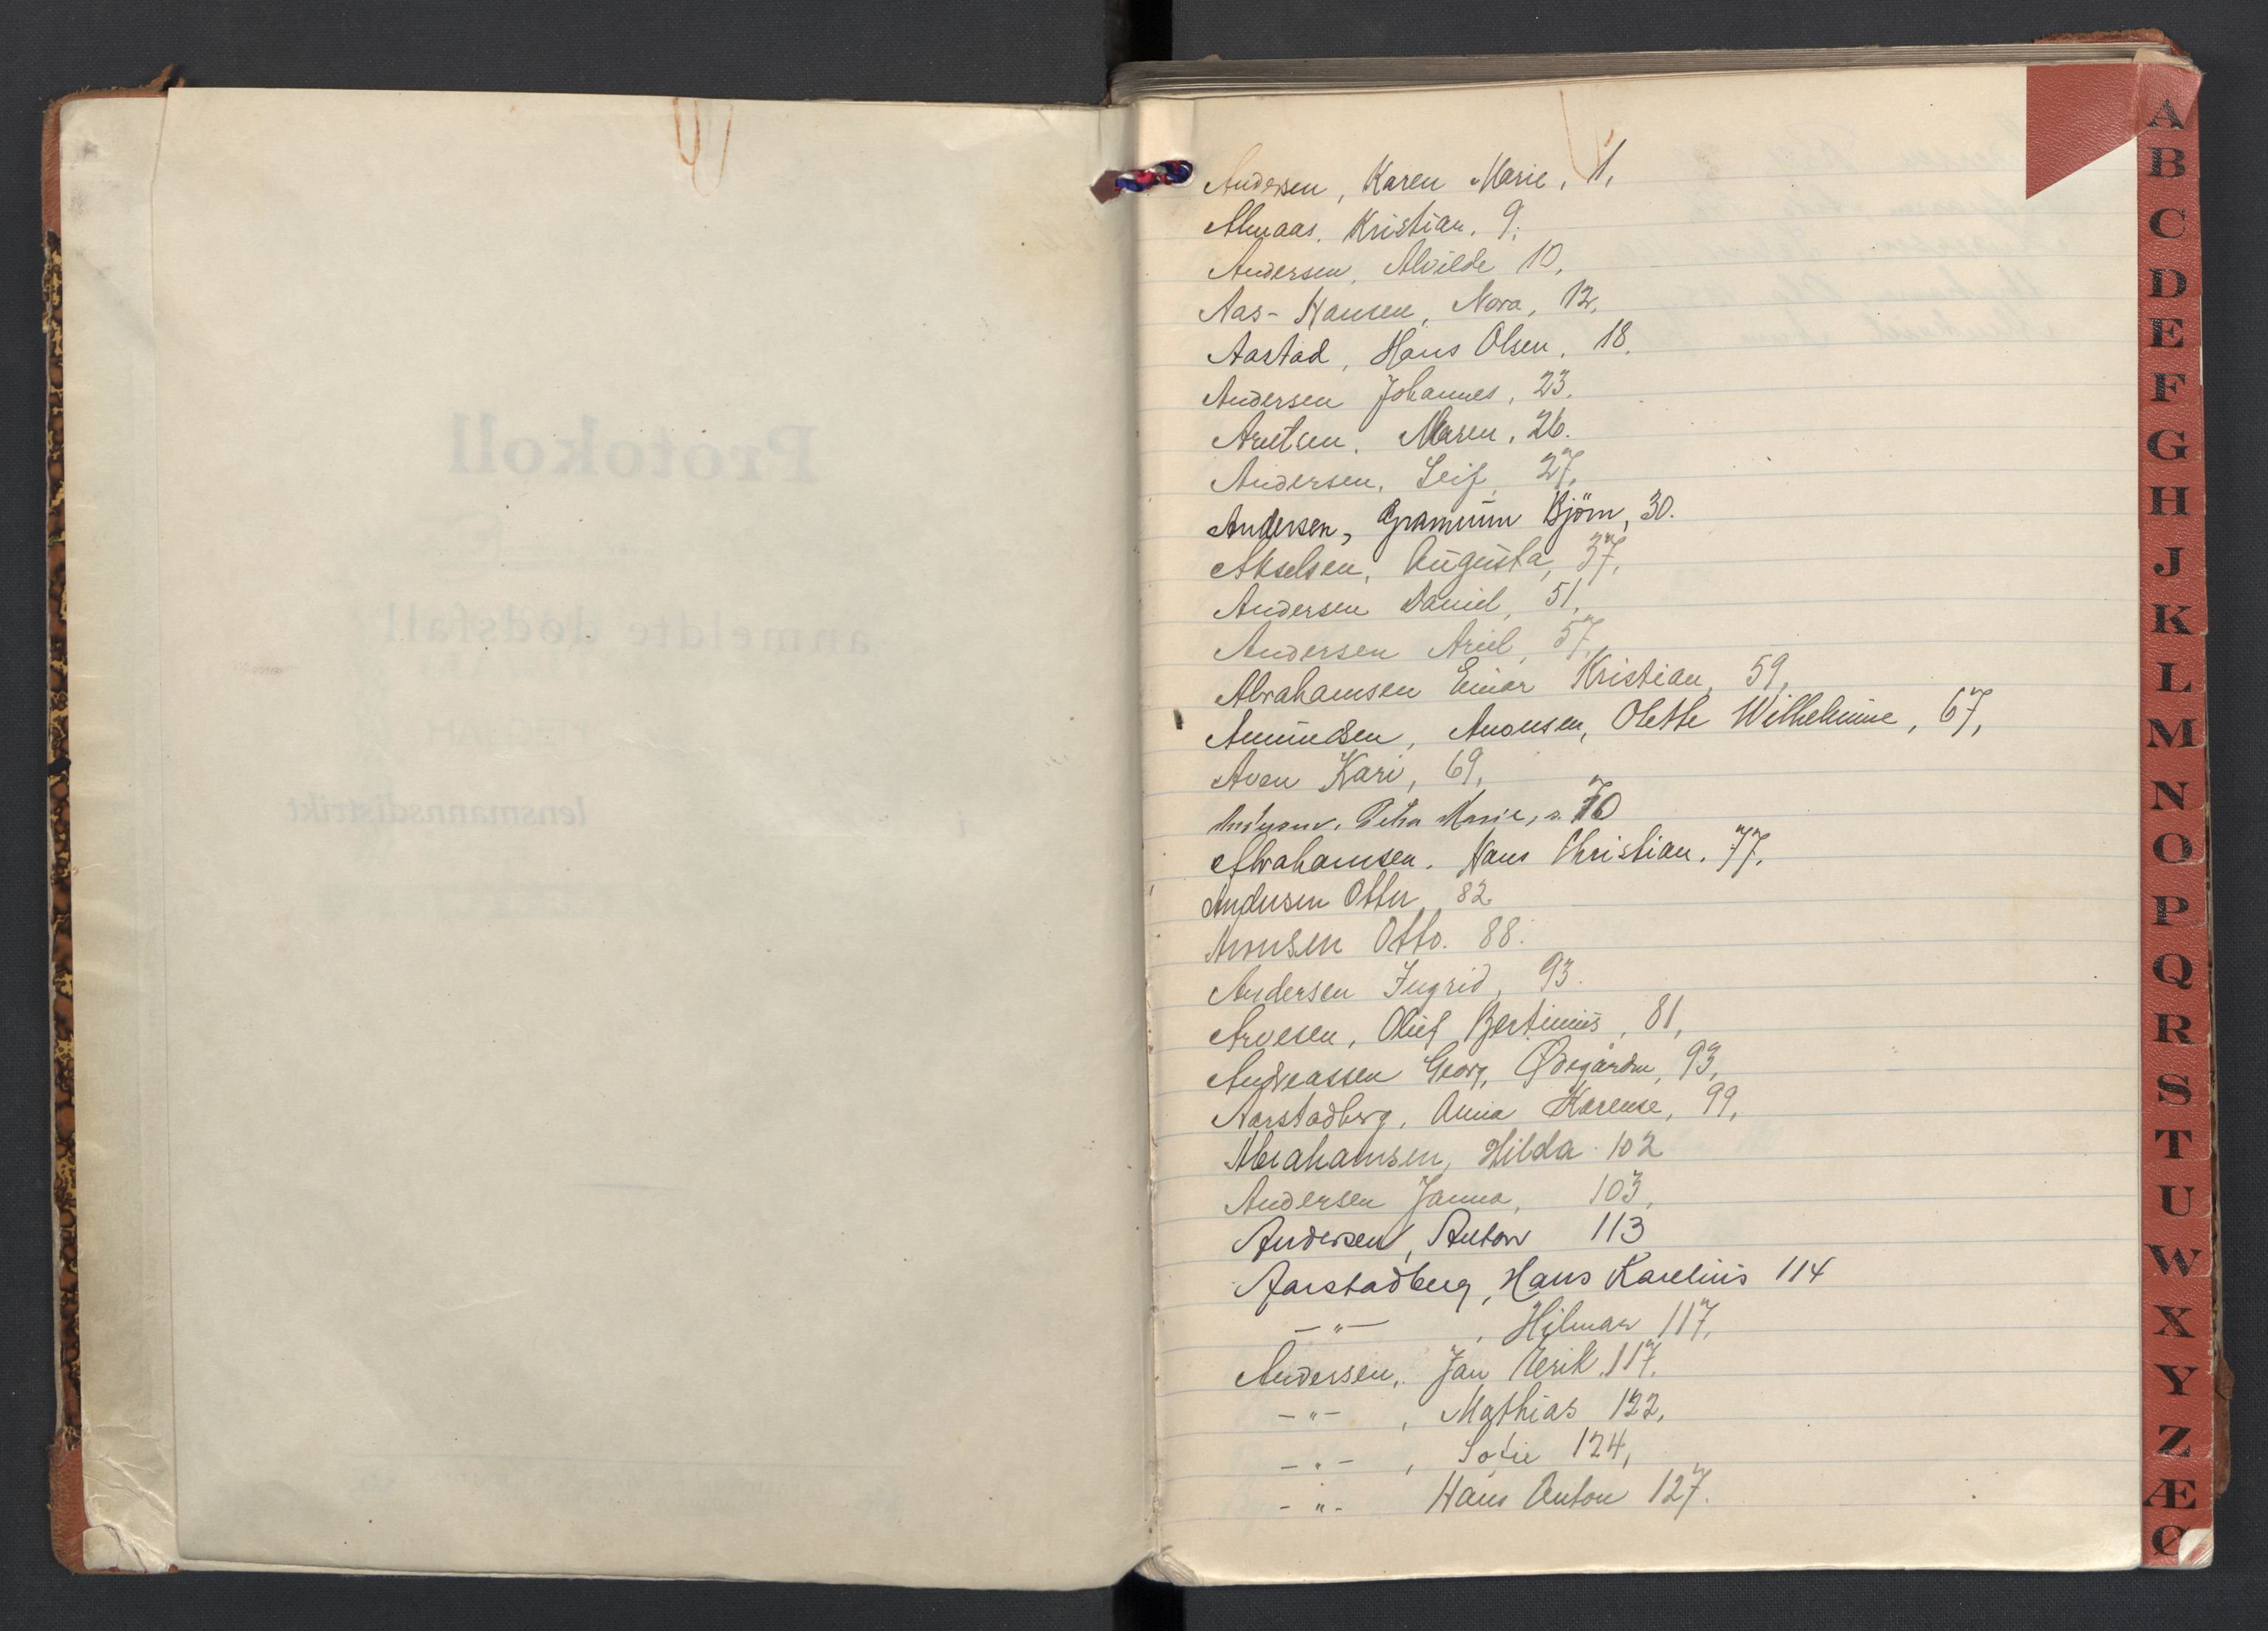 Protokoll
anmeldte dødsfall
i lensmannsdistrikt
Andersen, Karen Marie, 1,
Almaas, Kristian, 9,
Andersen, Alvilde 10,
Aas-Hansen, Nora, 12,
Aastad, Hans Olsen, 18,
Andersen Johannes, 23.
Arntsen, Maren, 26.
Andersen, Leif, 27,
Andersen, Bjørn, 30.
Akselsen, Augusta, 37,
Andersen Daniel, 51,
Andersen Ariel, 57,
Abrahamsen Einar Kristian, 59,
Amundsen, Olette Wilhelmine, 67,
Aven Kari, 69,
Andersen, Petra Marie, s. 70
Abrahamsen, Hans Christian, 77,
Andersen Otter, 82
Aronsen Otto. 88.
Andersen Ingrid, 93.
Arvesen, Oluf Bertinius, 81,
Andreassen Georg, Ødegården, 93,
Aarstadberg, Anna Karense, 99,
Abrahamsen, Hilda 102
Andersen Janna, 103,
Andersen, Anton 113
Aarstadberg, Hans Karelius 114
—"— , Hilmar 117,
Andersen, Jan Erik, 117.
-"- , Mathias 122,
-"- , Sofie 124,
-"- Hans Anton 127.
A
B
C
D
E
F
G
H
J
K
L
M
N
O
P
Q
R
S
T
U
W
X
Y
Z
Æ
Ø